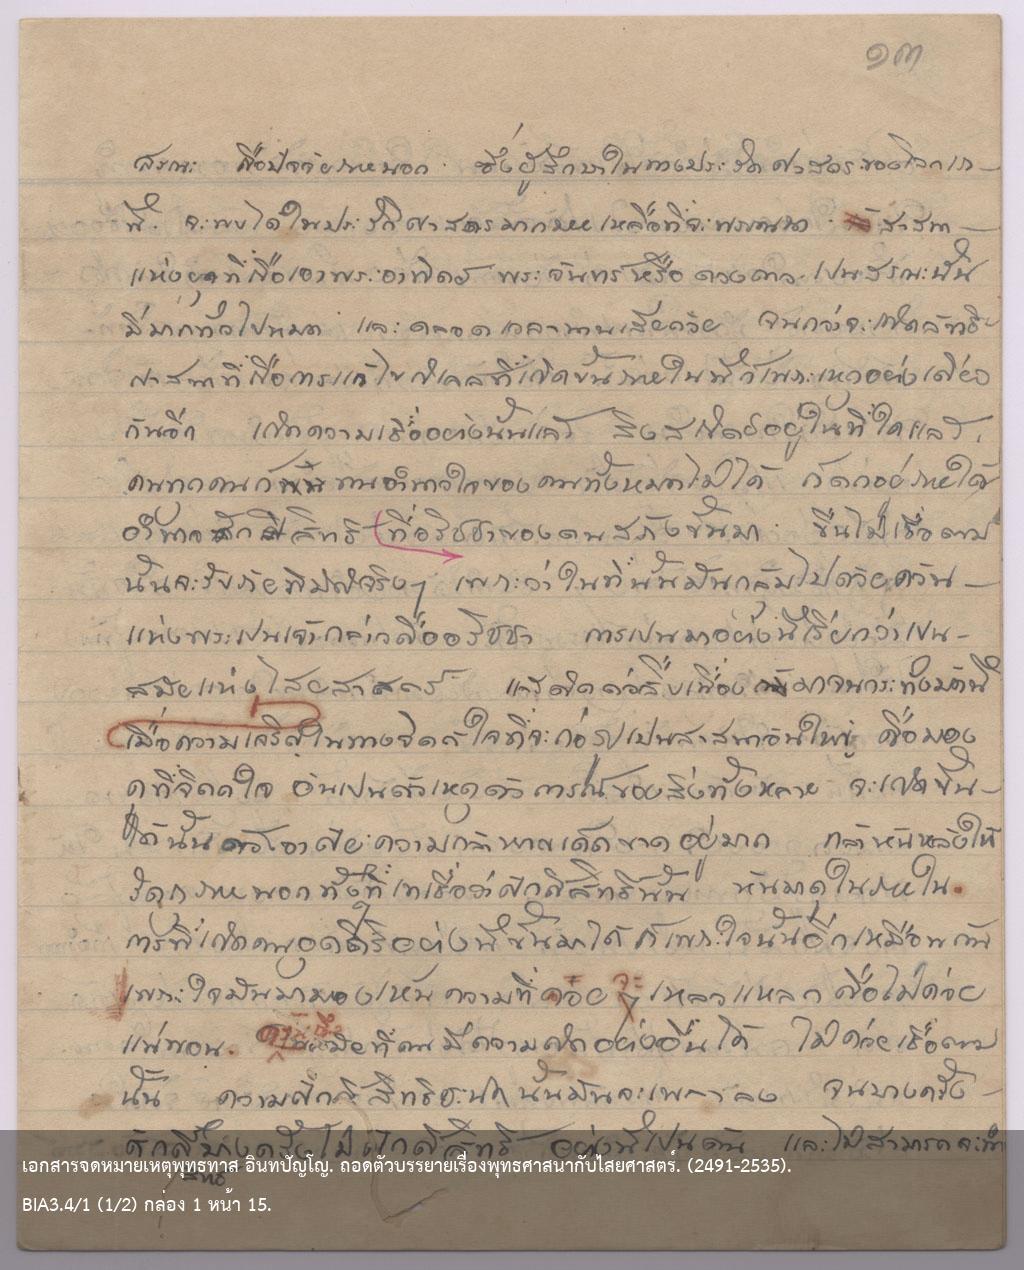 ๑๓
สรณะ คือปัจจัยภายนอก ซึ่งผู้ศึกษาในทางประวัติศาสตร์ของโลกเรา
นี้ จะพบได้ในประวัติศาสตร์มากมายเหลือที่จะพรรณนา ศาสนา
แห่งยุคที่ถือเอาพระอาทิตย์ พระจันทร์ หรือ ดวงดาว เป็นสรณะนั้น
มีมากทั่วไปหมด และตลอดเวลานานเสียด้วย จนกว่าจะเกิดลัทธิ
ศาสนาที่ถือการแก้ไขกิเลสที่เกิดขึ้นภายใน นี้ก็เพราะเหตุอย่างเดียว
กันอีก เกิดความเชื่ออย่างนั้นแล้ว สิงสถิตย์อยู่ในที่ใดแล้ว
คนทุกคนก็ทนอำนาจใจของคนทั้งหมดไม่ได้ ก็ตกอยู่ภายใต้
อำนาจศักดิ์สิทธิ์ ที่อวิชชาของตนสร้างขึ้นมา ขืนไม่เชื่อตาม
นั้นจะรับภัยพิบัติจริงๆ เพราะว่าในที่นั้นมันกลุ้มไปด้วยควัน
แห่งพระเป็นเจ้ากล่าวคืออวิชชา การเป็นมาอย่างนี้เรียกว่าเป็น
สมัยแห่งไสยศาสตร์ แล้วติดต่อสืบเนื่องมาจนกระทั่งบัดนี้
เมื่อความเจริญในทางจิตต์ใจที่จะก่อรูปเป็นศาสนาอันใหญ่ คือมอง
ดูที่จิตต์ใจ อันเป็นตัวเหตุตัวการณ์ของสิ่งทั้งหลาย จะเกิดขึ้น
ได้นั้น ต้องอาศัยความกล้าหาญเด็ดขาดอยู่มาก กล้าหันหลังให้
วัตถุภายนอกทั้งที่เขาเชื่อว่าศักดิ์สิทธิ์นั้น หันมาดูในภายใน
การที่เกิดคนอุตตริอย่างนี้ขึ้นมาได้ ก็เพราะใจนั้นอีกเหมือนกัน
เพราะใจมันมามองเห็นความที่ เหลวแหลก คือไม่ค่อย
แน่นอน. มีความคิดอย่างอื่นได้ ไม่ค่อยเชื่อตาม
นั้น ความศักดิ์สิทธิ์ชะนิดนั้นมันจะเพลาลง จนบางครั้ง
ศักดิ์สิทธิ์บางครั้งไม่ศักดิ์สิทธิ์ อย่างนี้เป็นต้น และไม่สามารถจะทำ
เอกสารจดหมายเหตุพุทธทาส อินทปัญโญ. ถอดตัวบรรยายเรื่องพุทธศาสนากับไสยศาสตร์. (2491-2535).
BIA3.4/1 (1/2) กล่อง 1 หน้า 15.